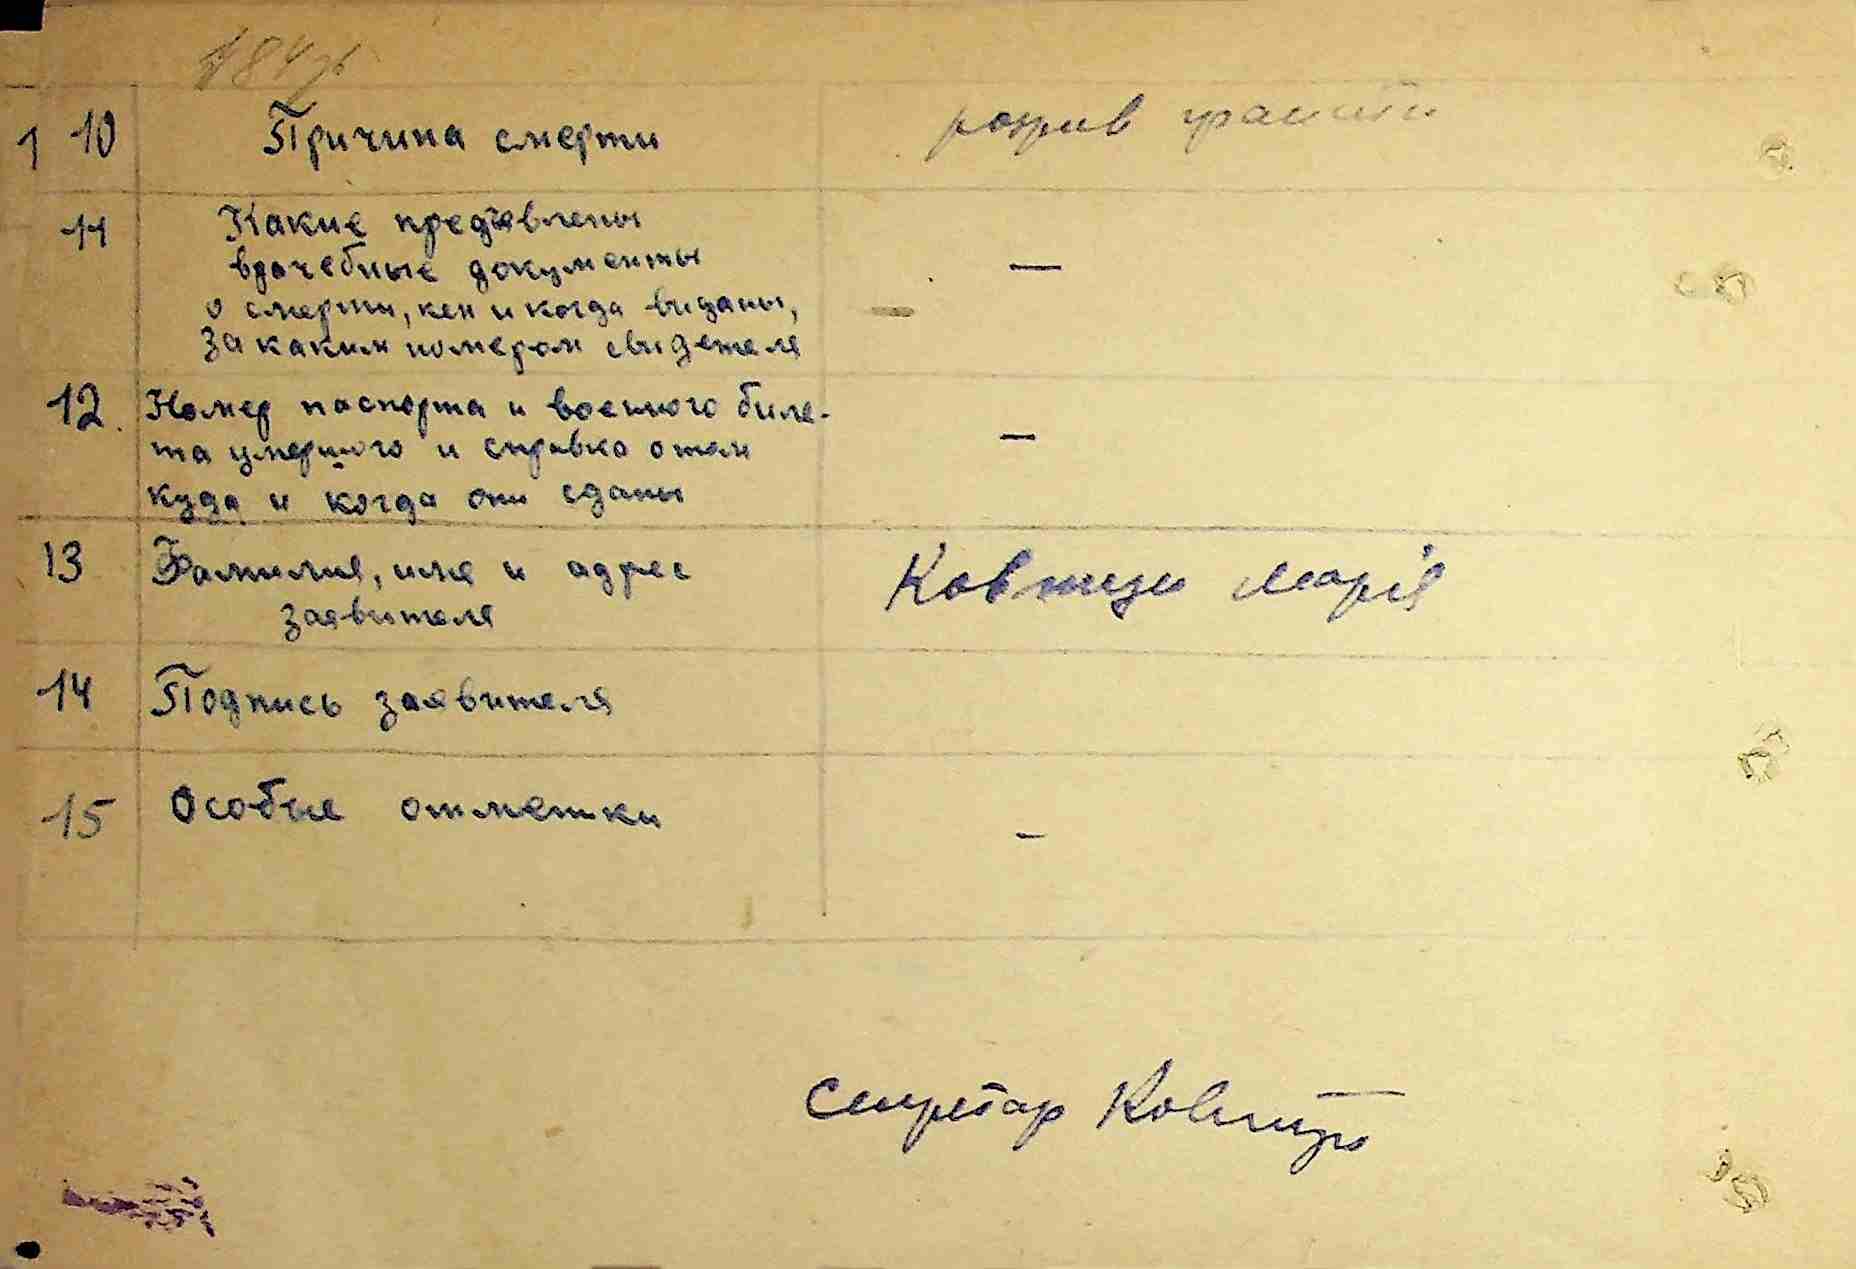 10 Причина смерти розрив гранати
11 Какие предъявлены
врачебные документы —
о смерти, кем и когда виданы,
за каким номером свидетеля
12. Номер паспорта и военного биле-
та умершого и справка о том —
куда и когда они сданы
13 Фамилия, имя и адрес Марія
заявителя
14 Подпись заявителя
15 Особые отметки –
Секретар